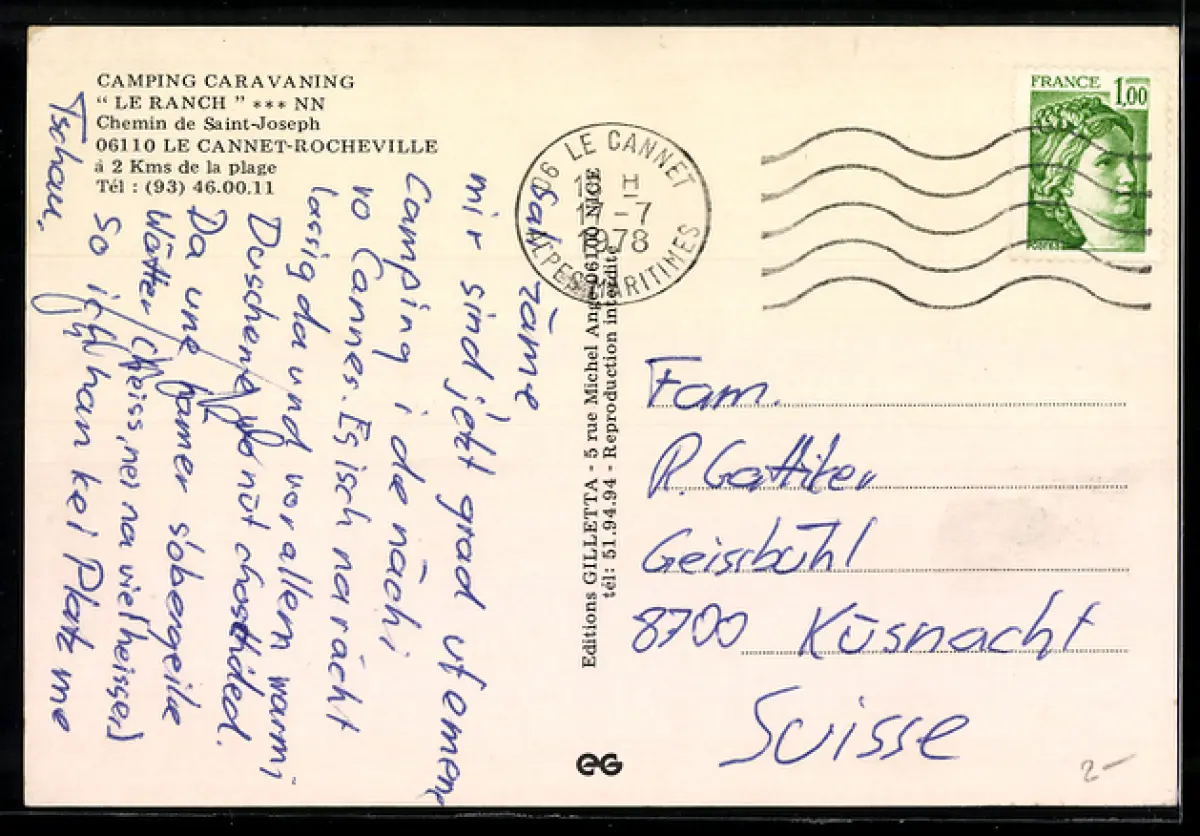 CAMPING CARAVANING
“ LE RANCH ” *** NN
Chemin de Saint-Joseph
06110 LE CANNET-ROCHEVILLE
à 2 Kms de la plage
Tél : (93) 46.00.11
06 LE CANNET
H
17-7
1978
ALPES MARITIMES
FRANCE 1,00
POSTES
Sali zäme
mir sind jetzt grad uf emene
Camping i de nächi
vo Cannes. Es isch na rächt
lässig da und vor allem warmi
Duschene wo nüt chosted.
Da une hämer s'obergeile
Wätter (heiss, nei na viel heisser)
So ich han kei Platz me
Tschau,
Editions GILLETTA - 5 rue Michel Ange 06100 NICE
tél : 51.94.94 - Reproduction interdite
eG
Fam.
R. Gattiker
Geissbühl
8700 Küsnacht
Suisse
2-